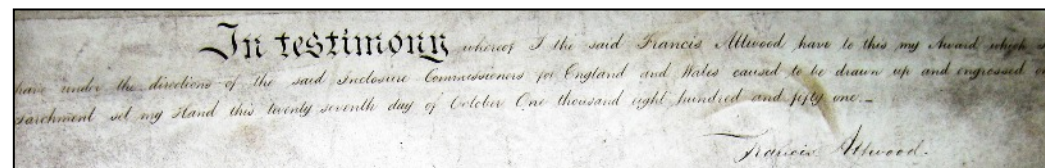 In testimony whereof I the said Francis Attwood have to this my Award which
have under the directions of the said Inclosure Commissioners for England and Wales caused to be drawn up and engrossed
Parchment set my Hand this twenty seventh day of October One thousand eight hundred and fifty one._
Francis Attwood.